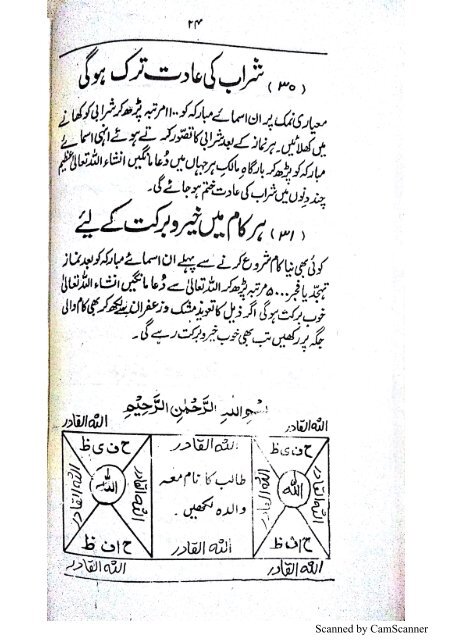 ۲۴
(۳۰) شراب کی عادت ترک ہوگی
معیاری نمک پر ان اسمائے مبارکہ کو ۱۱۰۰ مرتبہ پڑھ کر شرابی کو کھانے
میں کھلائیں۔ ہر نماز کے بعد شرابی کا تصور کرتے ہوئے انہی اسمائے
مبارکہ کو پڑھ کر بارگاہِ مالکِ ہر جہاں میں دُعا مانگیں انشاء اللہ تعالیٰ عظیم
چند دنوں میں شراب کی عادت ختم ہو جائے گی۔
(۳۱) ہر کام میں خیر و برکت کے لیئے
کوئی بھی نیا کام شروع کرنے سے پہلے ان اسمائے مبارکہ کو بعد نماز
تہجد یا فجر ۵۰۰ مرتبہ پڑھ کر اللہ تعالیٰ سے دُعا مانگیں انشاء اللہ تعالیٰ
خوب برکت ہوگی اگر ذیل کا تعویذ مشک و زعفران سے لکھ کر بھی کام والی
جگہ پر رکھیں تب بھی خوب خیر و برکت رہے گی۔
بِسْمِ اللهِ الرَّحْمٰنِ الرَّحِيْمِ
الله القادر
الله القادر
ح ف ی ظ
الله القادر
ح ف ی ظ
الله القادر
الله
الله القادر
طالب کا نام معہ
والدہ لکھیں۔
الله القادر
الله
الله القادر
ح ا ف ظ
الله القادر
ح ا ف ظ
الله القادر
الله القادر
Scanned by CamScanner